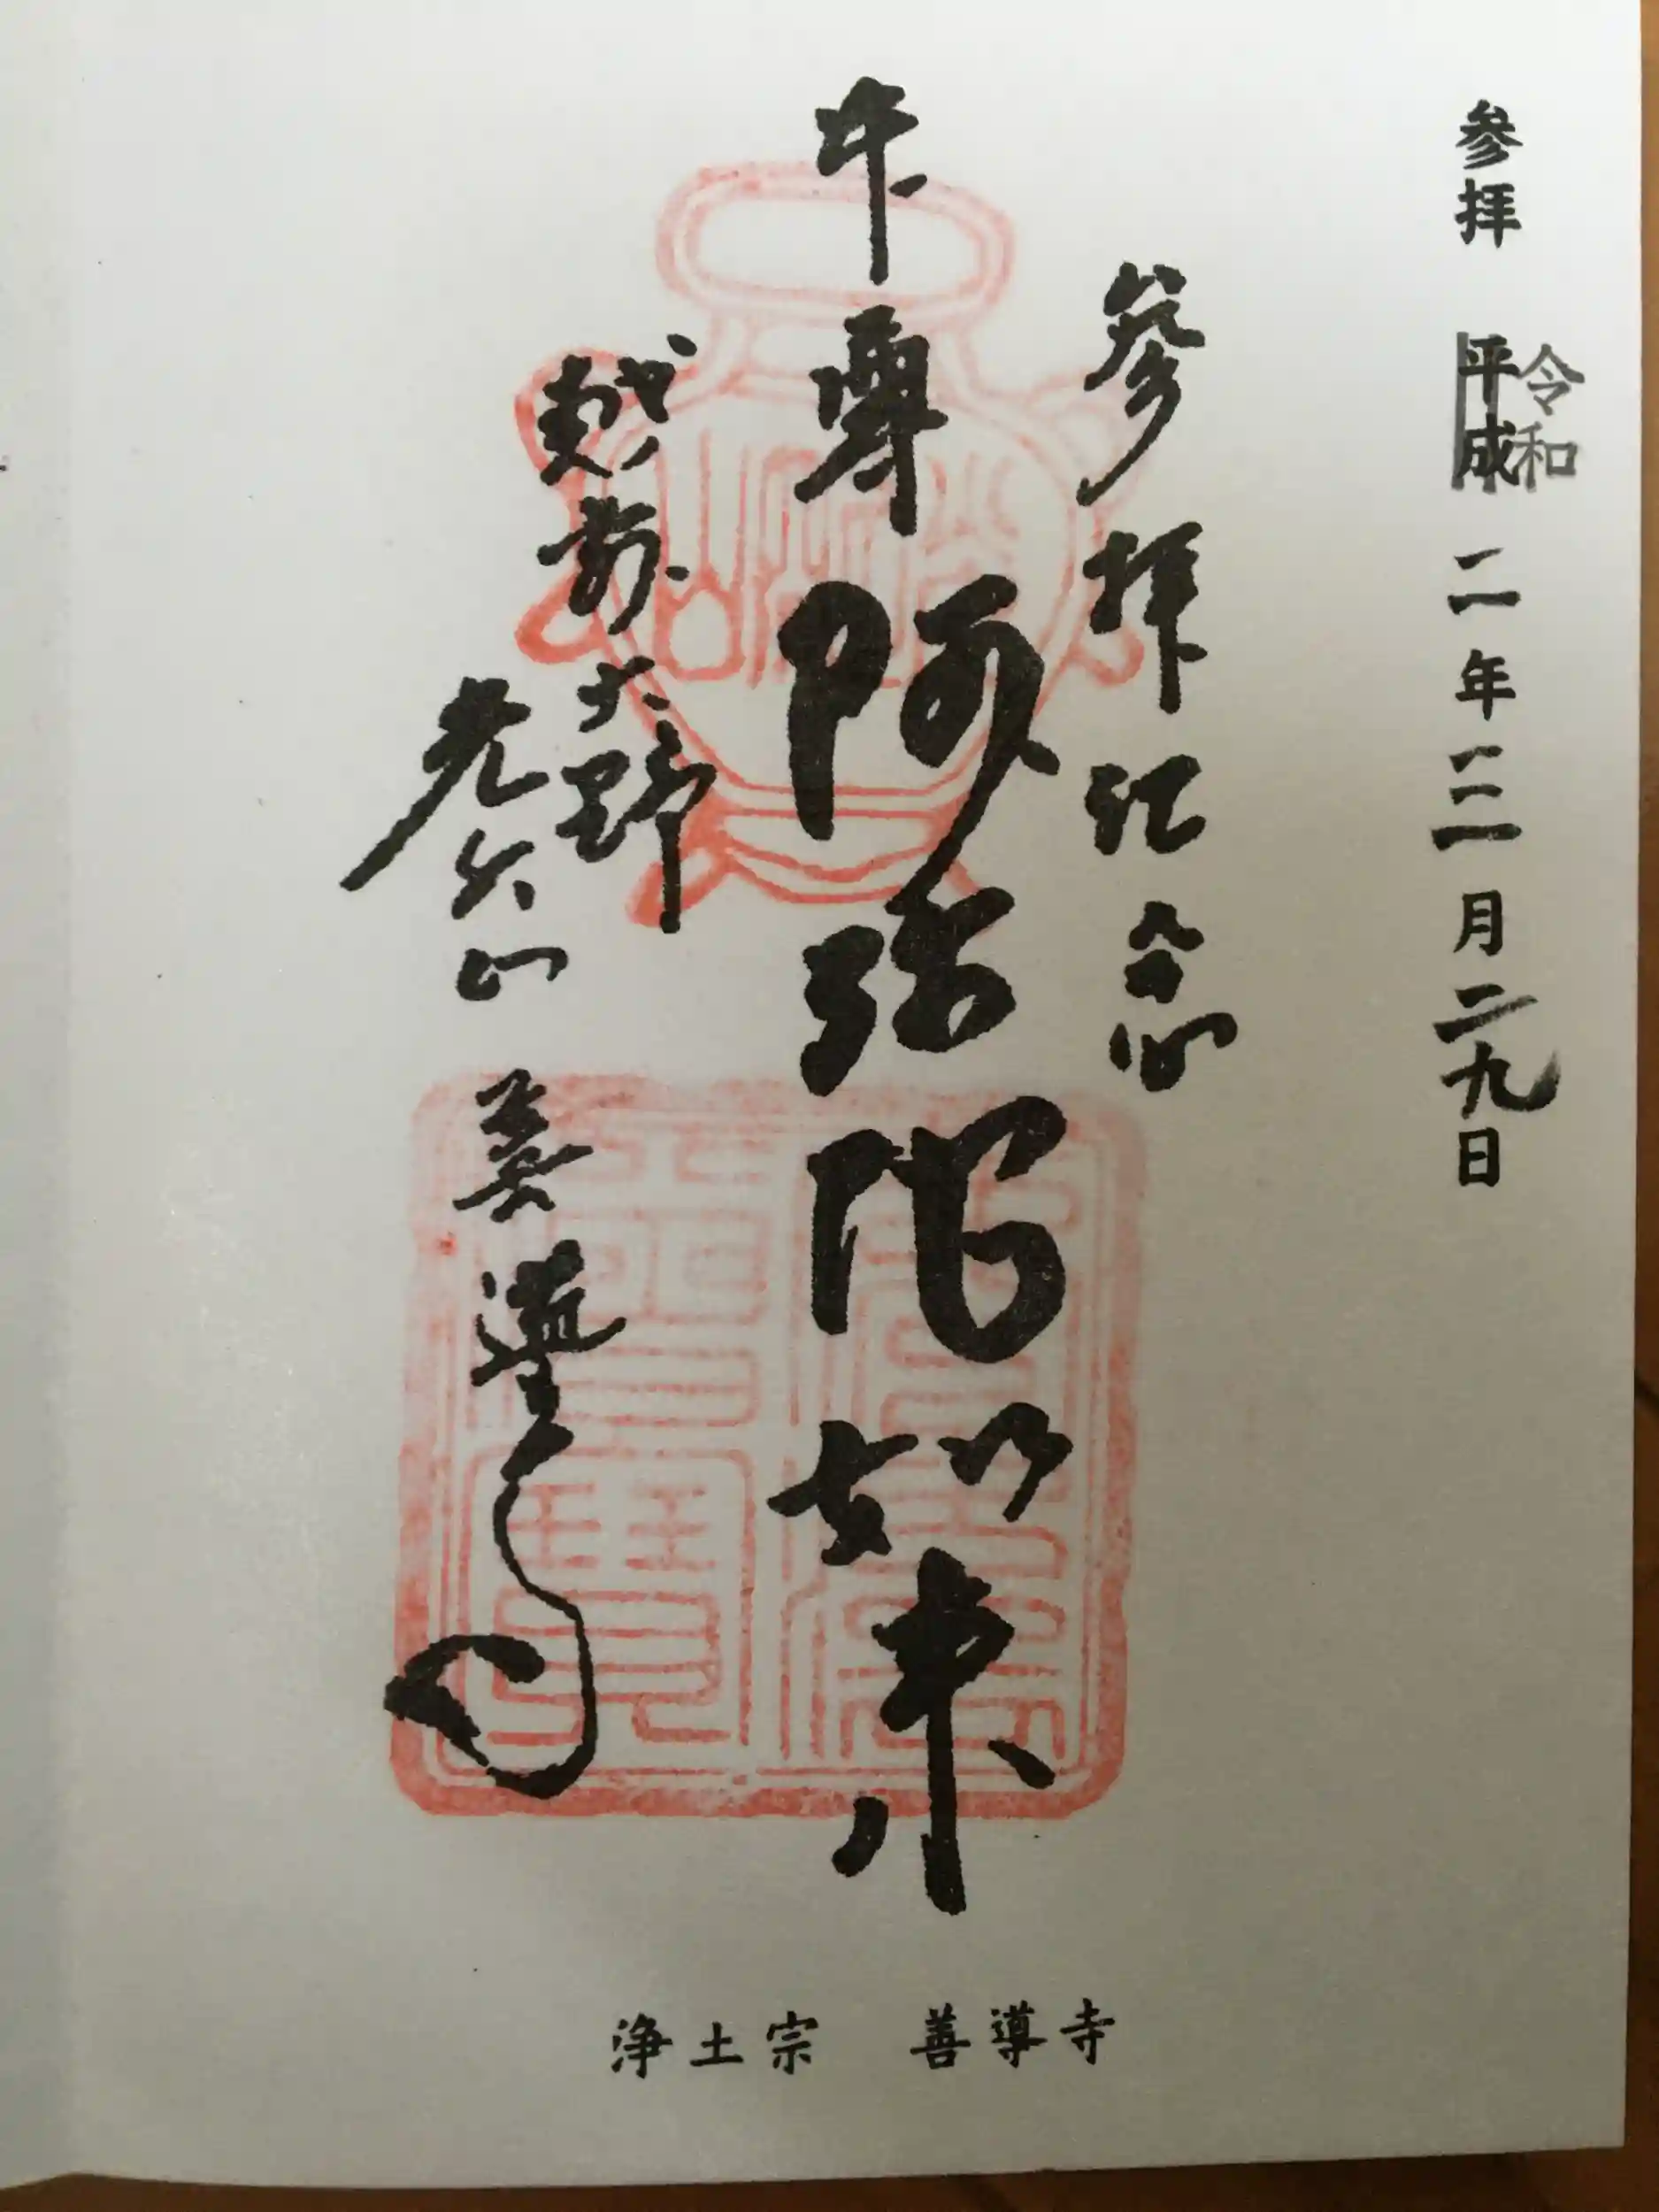 参拝 平成 二年三月二九日
令和
参拝記念
本尊 阿弥陀如来
越前大野
光久山 善導寺
浄土宗 善導寺